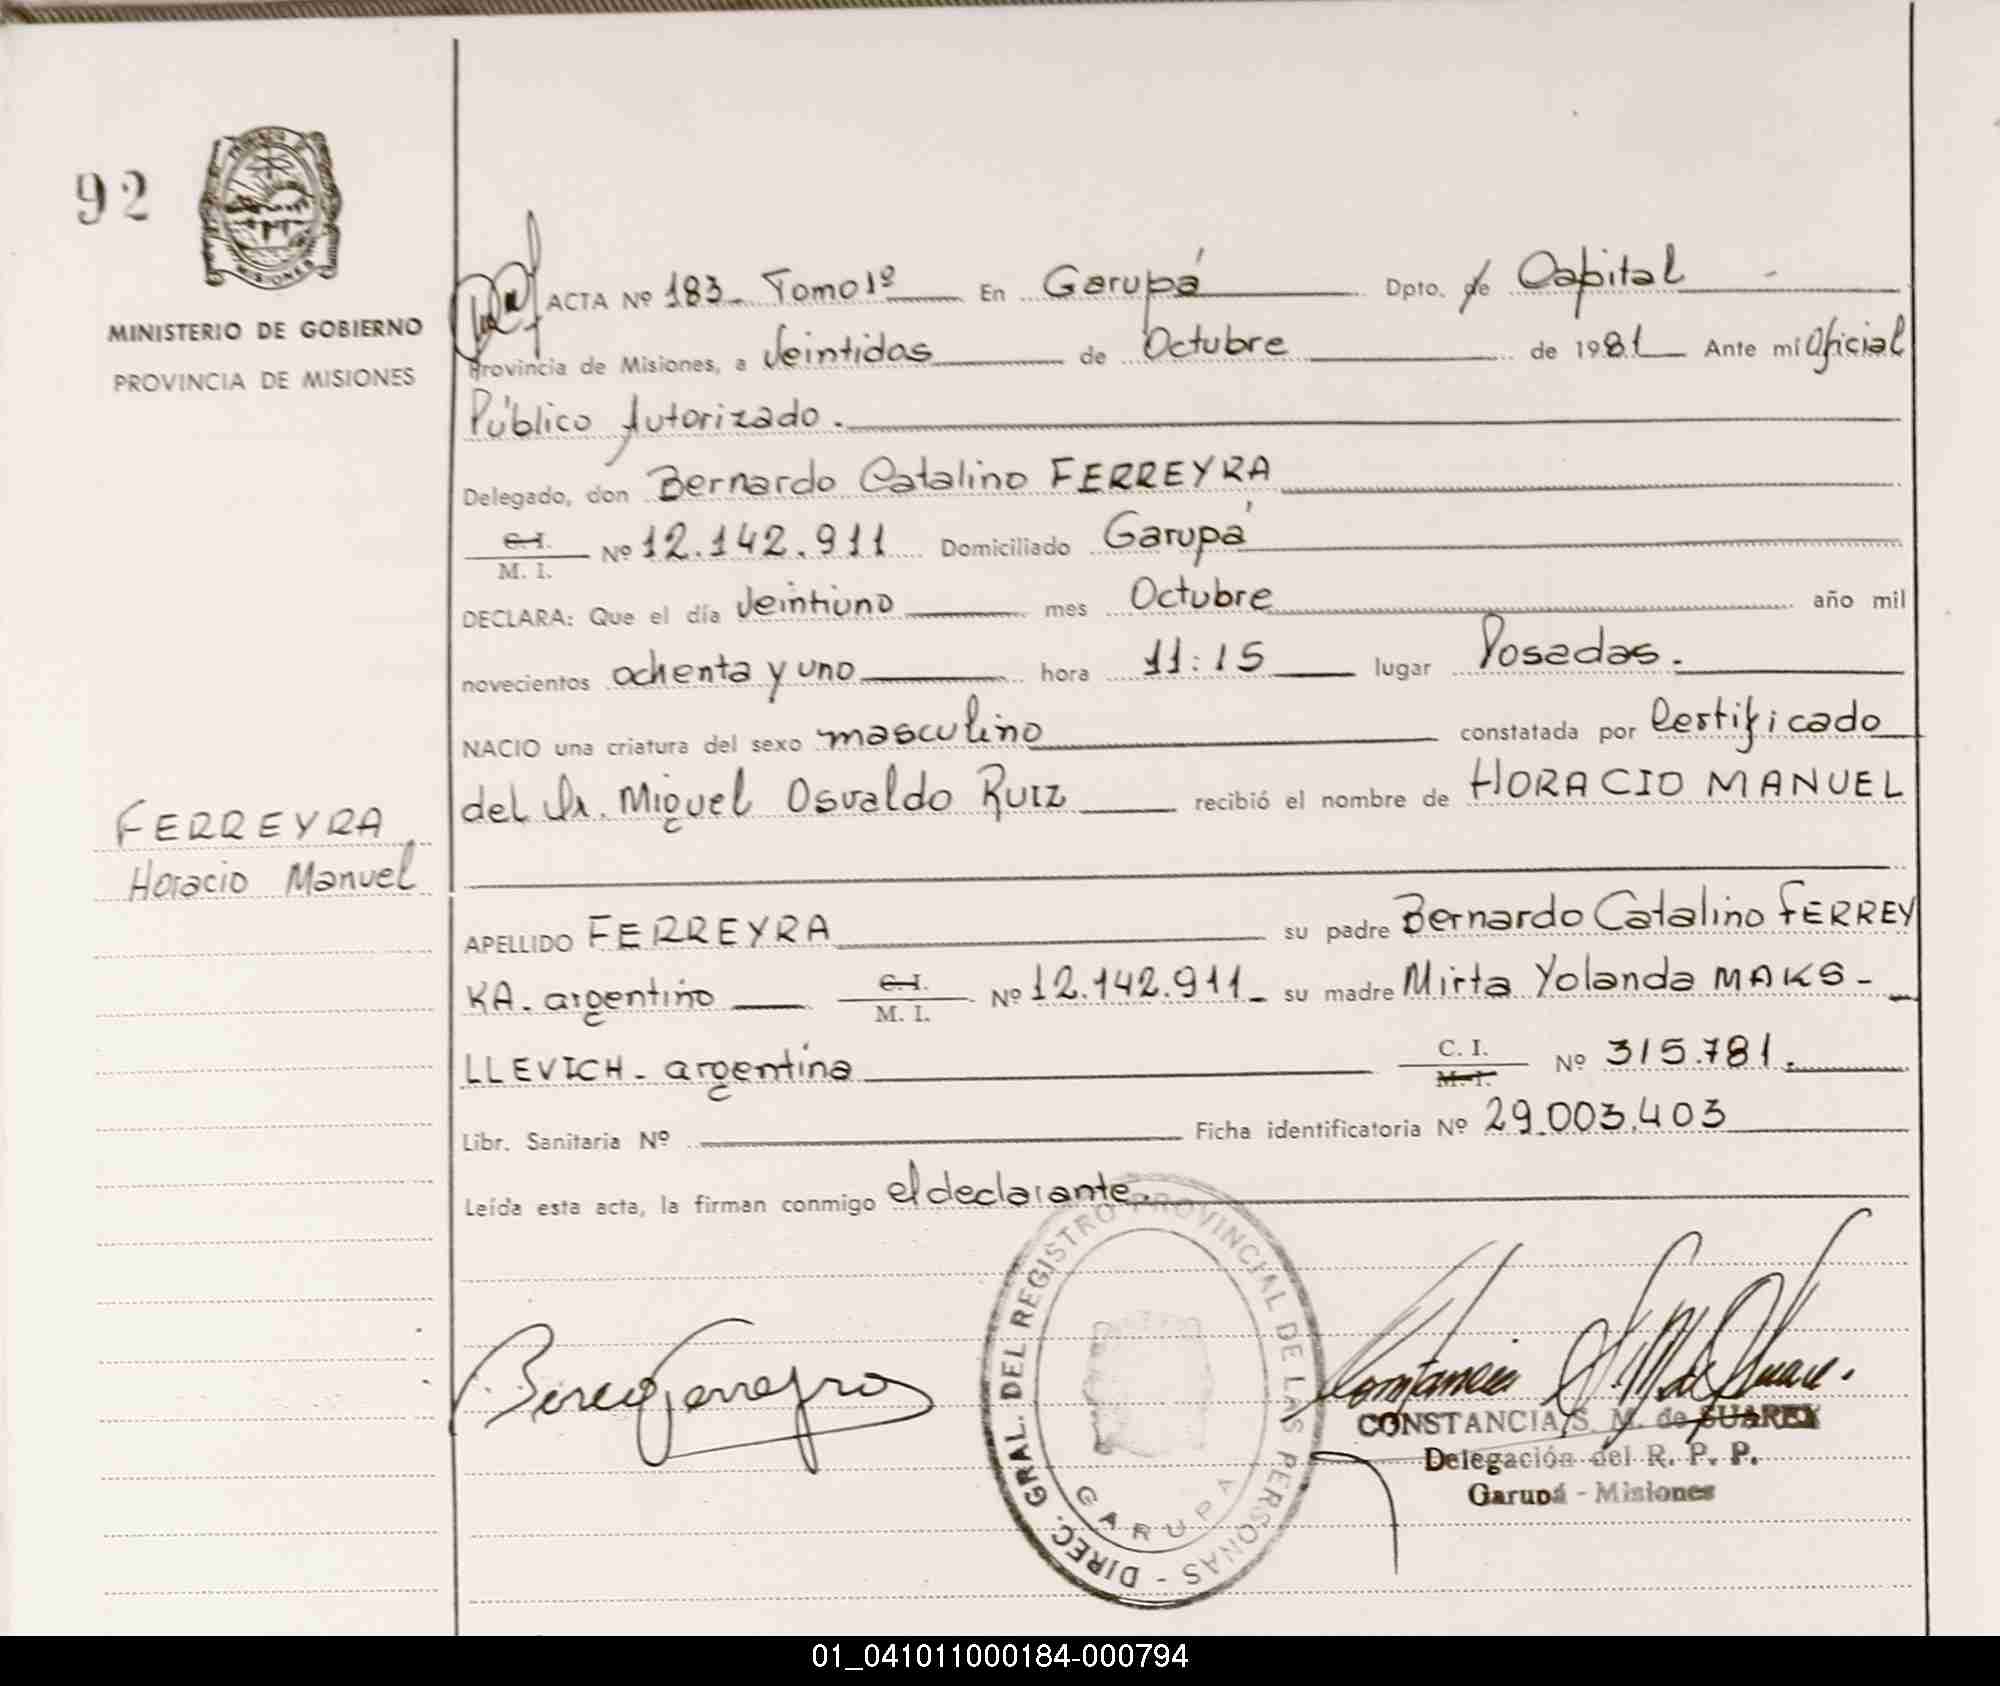 92
MINISTERIO DE GOBIERNO
PROVINCIA DE MISIONES
MISIONES
ACTA Nº 183 - Tomo 1º En Garupá Dpto. de Capital -
Provincia de Misiones, a Veintidos de Octubre de 1981 Ante mí Oficial
Público Autorizado.
Delegado, don Bernardo Catalino FERREYRA
C. I.
M. I. Nº 12.142.911 Domiciliado Garupá
DECLARA: Que el día Veintiuno mes Octubre año mil
novecientos ochenta y uno hora 11:15 lugar Posadas.
NACIO una criatura del sexo masculino constatada por Certificado
del Dr. Miguel Osvaldo Ruiz recibió el nombre de HORACIO MANUEL
FERREYRA
Horacio Manuel
APELLIDO FERREYRA su padre Bernardo Catalino FERREY
RA - argentino C. I. M. I. Nº 12.142.911 - su madre Mirta Yolanda MAKS -
LLEVICH - argentina C. I. M. I. Nº 315.781.
Libr. Sanitaria Nº Ficha identificatoria Nº 29.003.403
Leída esta acta, la firman conmigo el declarante.
DIREC. GRAL. DEL REGISTRO PROVINCIAL DE LAS PERSONAS -
GARUPA
Constancia S. M. de Suarez.
CONSTANCIA S. M. de SUAREZ
Delegación del R. P. P.
Garupá - Misiones
01_041011000184-000794